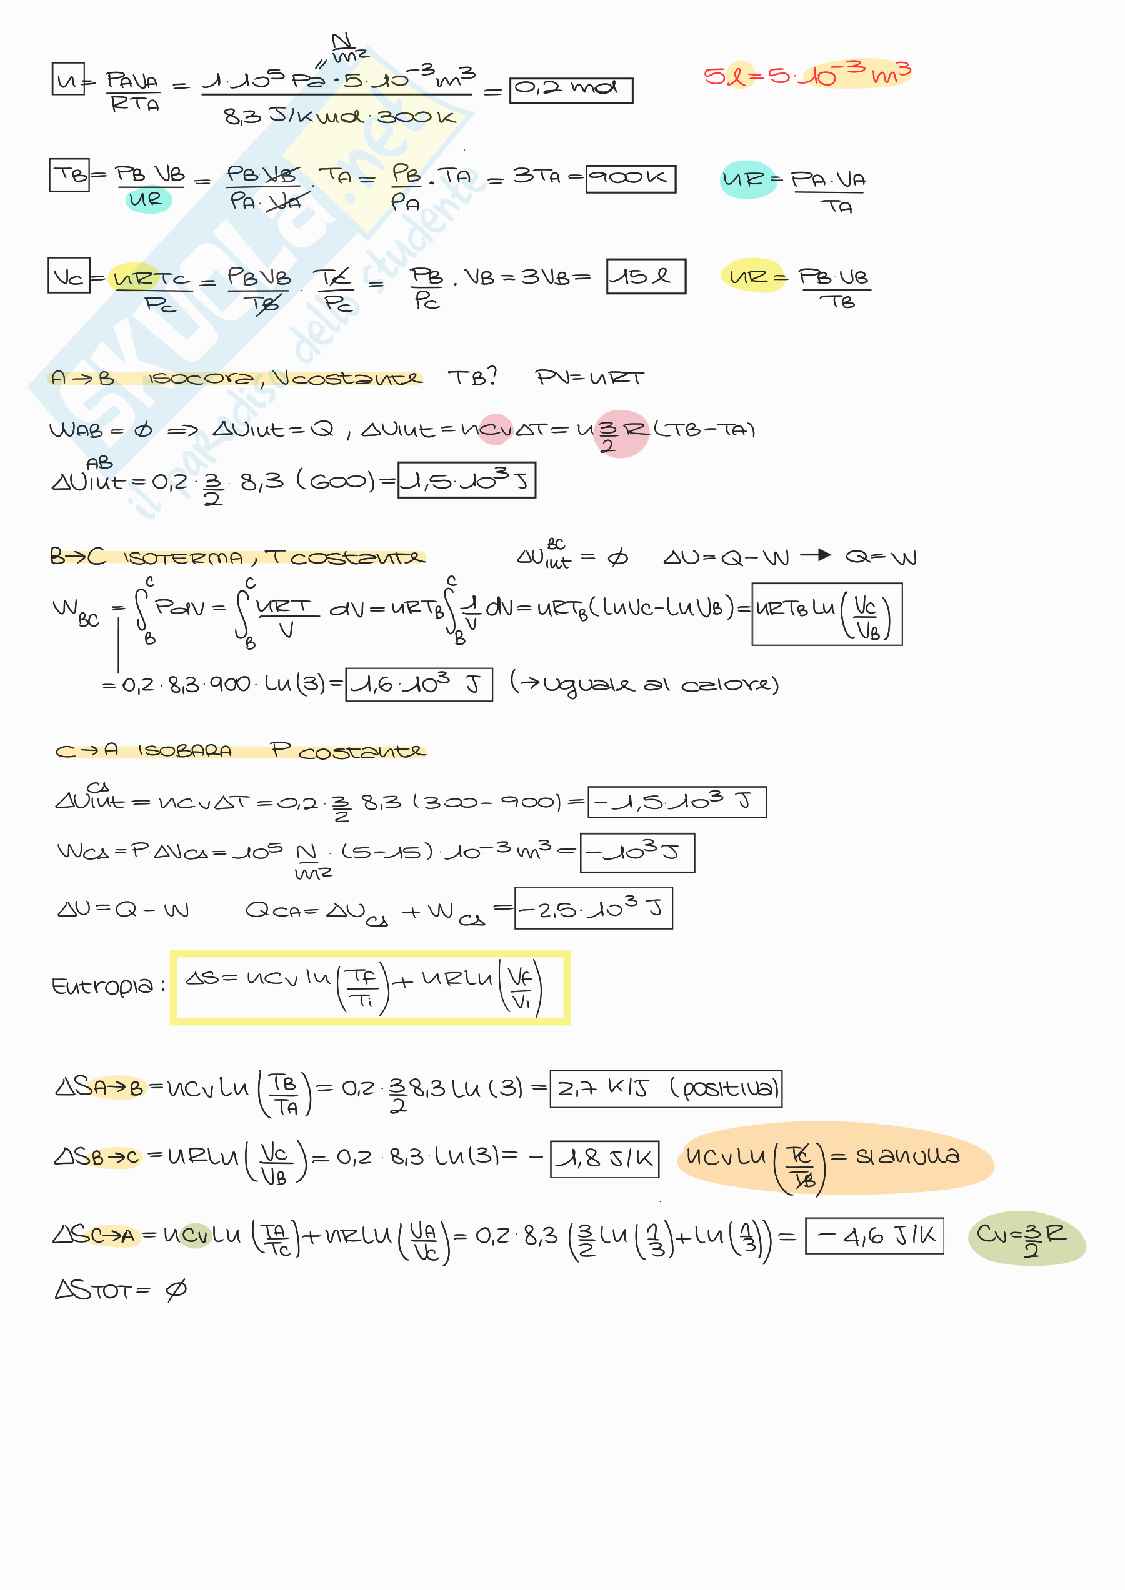 n = PAVA/RTA = 1·10⁵ Pa · 5·10⁻³ m³ / 8,3 J/K mol · 300 K = 0,2 mol
" N/m²
5 l = 5·10⁻³ m³
TB = PB VB/nR = PB VB/PA·VA · TA = PB/PA · TA = 3TA = 900 K
nR = PA·VA/TA
VC = nRTC/PC = PBVB/TB · TC/PC = PB/PC · VB = 3VB = 15 l
nR = PB·VB/TB
A→B ISOCORA, V costante TB? PV = nRT
WAB = ∅ => ΔUint = Q , ΔUint = nCvΔT = n 3/2 R (TB-TA)
ΔUint AB = 0,2 · 3/2 · 8,3 (600) = 1,5·10³ J
B→C ISOTERMA, T costante ΔUint BC = ∅ ΔU = Q-W → Q = W
WBC = ∫BC PdV = ∫BC nRT/V dV = nRTB ∫BC 1/V dV = nRTB (lnVC - lnVB) = nRTB ln (VC/VB)
= 0,2·8,3·900·ln(3) = 1,6·10³ J (→ uguale al calore)
C→A ISOBARA P costante
ΔUint CA = nCvΔT = 0,2·3/2 8,3 (300-900) = -1,5·10³ J
WCA = PΔVCA = 10⁵ N/m² · (5-15)·10⁻³ m³ = -10³ J
ΔU = Q - W QCA = ΔUCA + WCA = -2,5·10³ J
Entropia: ΔS = nCv ln (TF/Ti) + nR ln (VF/Vi)
ΔSA→B = nCv ln (TB/TA) = 0,2·3/2 8,3 ln(3) = 2,7 K/J (positiva)
ΔSB→C = nR ln (VC/VB) = 0,2·8,3·ln(3) = - 1,8 J/K nCv ln (TC/TB) = si annulla
ΔSC→A = nCv ln (TA/TC) + nR ln (VA/VC) = 0,2·8,3 (3/2 ln (1/3) + ln (1/3)) = -4,6 J/K Cv = 3/2 R
ΔSTOT = ∅
SKUOLA.net
il paradiso dello studente